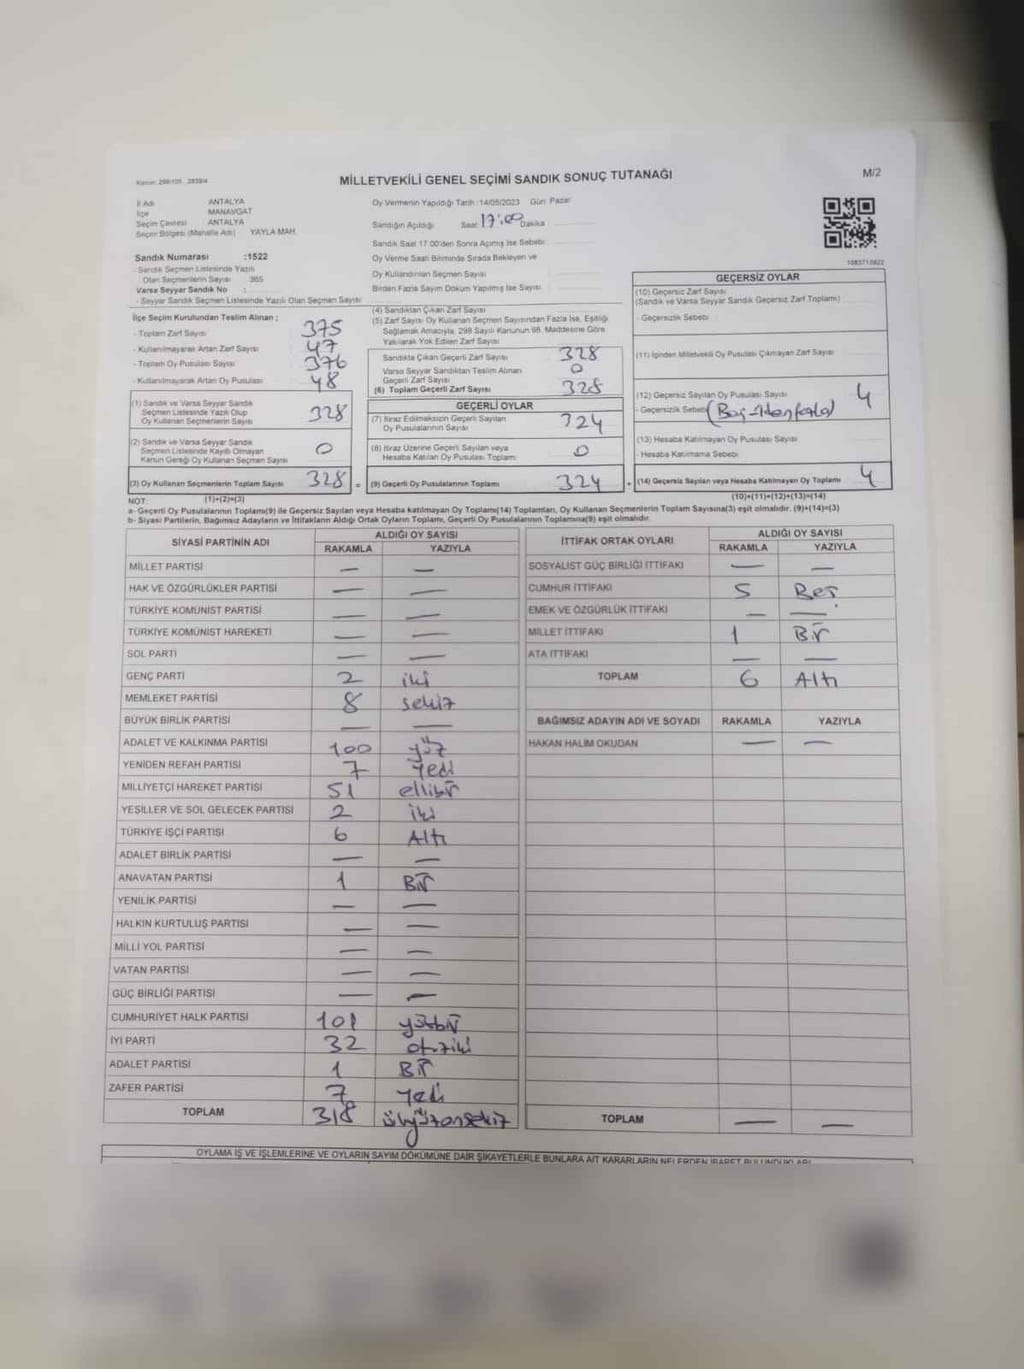 MİLLETVEKİLİ GENEL SEÇİMİ SANDIK SONUÇ TUTANAĞI
M/2
İl Adı ANTALYA
İlçe MANAVGAT
Seçim Çevresi ANTALYA
Seçim Bölgesi (Mahalle Adı) YAYLA MAH.
Oy Vermenin Yapıldığı Tarih :14/05/2023 Gün: Pazar
Sandığın Açıldığı Saat 17:00 Dakika
Sandık Saat 17:00'den Sonra Açılmış İse Sebebi:
Sandık Numarası :1522
- Sandık Seçmen Listesinde Yazılı
Olan Seçmenlerin Sayısı : 365
Varsa Seyyar Sandık No :
- Seyyar Sandık Seçmen Listesinde Yazılı Olan Seçmen Sayısı
Oy Verme Saati Bitiminde Sırada Bekleyen ve
Oy Kullandırılan Seçmen Sayısı
Birden Fazla Sayım Döküm Yapılmış İse Sayısı
İlçe Seçim Kurulundan Teslim Alınan ;
- Toplam Zarf Sayısı 375
- Kullanılmayarak Artan Zarf Sayısı 47
- Toplam Oy Pusulası Sayısı 376
- Kullanılmayarak Artan Oy Pusulası 48
(1) Sandık ve Varsa Seyyar Sandık
Seçmen Listesinde Yazılı Olup
Oy Kullanan Seçmenlerin Sayısı 328
(2) Sandık ve Varsa Seyyar Sandık
Seçmen Listesinde Kayıtlı Olmayan
Kanun Gereği Oy Kullanan Seçmen Sayısı 0
(3) Oy Kullanan Seçmenlerin Toplam Sayısı 328 =
(4) Sandıktan Çıkan Zarf Sayısı
(5) Zarf Sayısı Oy Kullanan Seçmen Sayısından Fazla İse, Eşitliği
Sağlamak Amacıyla, 298 Sayılı Kanunun 98. Maddesine Göre
Yakılarak Yok Edilen Zarf Sayısı
Sandıkta Çıkan Geçerli Zarf Sayısı 328
Varsa Seyyar Sandıktan Teslim Alınan
Geçerli Zarf Sayısı 0
(6) Toplam Geçerli Zarf Sayısı 328
GEÇERLİ OYLAR
(7) İtiraz Edilmeksizin Geçerli Sayılan
Oy Pusulalarının Sayısı 324
(8) İtiraz Üzerine Geçerli Sayılan veya
Hesaba Katılan Oy Pusulası Toplamı 0
(9) Geçerli Oy Pusulalarının Toplamı 324 +
GEÇERSİZ OYLAR
(10) Geçersiz Zarf Sayısı
(Sandık ve Varsa Seyyar Sandık Geçersiz Zarf Toplamı)
- Geçersizlik Sebebi
(11) İçinden Milletvekili Oy Pusulası Çıkmayan Zarf Sayısı
(12) Geçersiz Sayılan Oy Pusulası Sayısı 4
- Geçersizlik Sebebi
(13) Hesaba Katılmayan Oy Pusulası Sayısı
- Hesaba Katılmama Sebebi
(14) Geçersiz Sayılan veya Hesaba Katılmayan Oy Toplamı 4
NOT: (1)+(2)=(3) (10)+(11)+(12)+(13)=(14)
a- Geçerli Oy Pusulalarının Toplamı(9) ile Geçersiz Sayılan veya Hesaba katılmayan Oy Toplamı(14) Toplamları, Oy Kullanan Seçmenlerin Toplam Sayısına(3) eşit olmalıdır. (9)+(14)=(3)
b- Siyasi Partilerin, Bağımsız Adayların ve İttifakların Aldığı Ortak Oyların Toplamı, Geçerli Oy Pusulalarının Toplamına(9) eşit olmalıdır.
SİYASİ PARTİNİN ADI ALDIĞI OY SAYISI
RAKAMLA YAZIYLA
MİLLET PARTİSİ — —
HAK VE ÖZGÜRLÜKLER PARTİSİ — —
TÜRKİYE KOMÜNİST PARTİSİ — —
TÜRKİYE KOMÜNİST HAREKETİ — —
SOL PARTİ — —
GENÇ PARTİ 2 iki
MEMLEKET PARTİSİ 8 sekiz
BÜYÜK BİRLİK PARTİSİ — —
ADALET VE KALKINMA PARTİSİ 100 yüz
YENİDEN REFAH PARTİSİ 7 yedi
MİLLİYETÇİ HAREKET PARTİSİ 51 ellibir
YEŞİLLER VE SOL GELECEK PARTİSİ 2 iki
TÜRKİYE İŞÇİ PARTİSİ 6 Altı
ADALET BİRLİK PARTİSİ — —
ANAVATAN PARTİSİ 1 Bir
YENİLİK PARTİSİ — —
HALKIN KURTULUŞ PARTİSİ — —
MİLLİ YOL PARTİSİ — —
VATAN PARTİSİ — —
GÜÇ BİRLİĞİ PARTİSİ — —
CUMHURİYET HALK PARTİSİ 101 yüzbir
İYİ PARTİ 32 otuziki
ADALET PARTİSİ 1 Bir
ZAFER PARTİSİ 7 yedi
TOPLAM 318 üçyüzonsekiz
İTTİFAK ORTAK OYLARI ALDIĞI OY SAYISI
RAKAMLA YAZIYLA
SOSYALİST GÜÇ BİRLİĞİ İTTİFAKI — —
CUMHUR İTTİFAKI 5 Beş
EMEK VE ÖZGÜRLÜK İTTİFAKI — —
MİLLET İTTİFAKI 1 Bir
ATA İTTİFAKI — —
TOPLAM 6 Altı
BAĞIMSIZ ADAYIN ADI VE SOYADI RAKAMLA YAZIYLA
HAKAN HALİM OKUDAN — —
TOPLAM — —
OYLAMA İŞ VE İŞLEMLERİNE VE OYLARIN SAYIM DÖKÜMÜNE DAİR ŞİKAYETLERLE BUNLARA AİT KARARLARIN NELERDEN İBARET BULUNDUKLARI